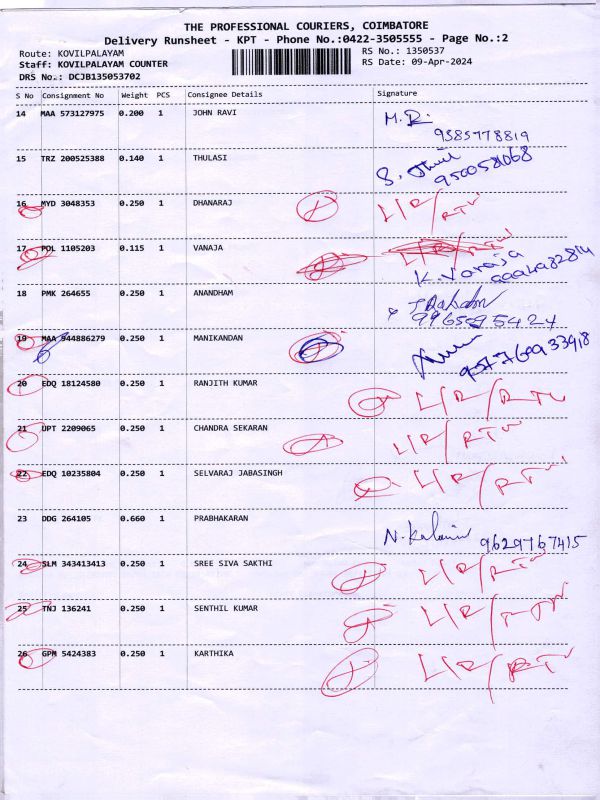 THE PROFESSIONAL COURIERS, COIMBATORE
Delivery Runsheet - KPT - Phone No.:0422-3505555 - Page No.:2
Route: KOVILPALAYAM RS No.: 1350537
Staff: KOVILPALAYAM COUNTER RS Date: 09-Apr-2024
DRS No.: DCJB135053702
S No Consignment No Weight PCS Consignee Details Signature
14 MAA 573127975 0.200 1 JOHN RAVI M.R.
9585778819
15 TRZ 200525388 0.140 1 THULASI S.
9500581068
16 MYD 3048353 0.250 1 DHANARAJ L/R/RTN
17 POL 1105203 0.115 1 VANAJA L/R/RTN
K.Vanaja
18 PMK 264655 0.250 1 ANANDHAM
9965595424
19 MAA 944886279 0.250 1 MANIKANDAN
20 EDQ 18124580 0.250 1 RANJITH KUMAR L/R/RTN
21 UPT 2209065 0.250 1 CHANDRA SEKARAN L/R/RTN
22 EDQ 10235804 0.250 1 SELVARAJ JABASINGH L/R/RTN
23 DDG 264105 0.660 1 PRABHAKARAN N. 9629767415
24 SLM 343413413 0.250 1 SREE SIVA SAKTHI L/R/RTN
25 TNJ 136241 0.250 1 SENTHIL KUMAR L/R/RTN
26 GPM 5424383 0.250 1 KARTHIKA L/R/RTN